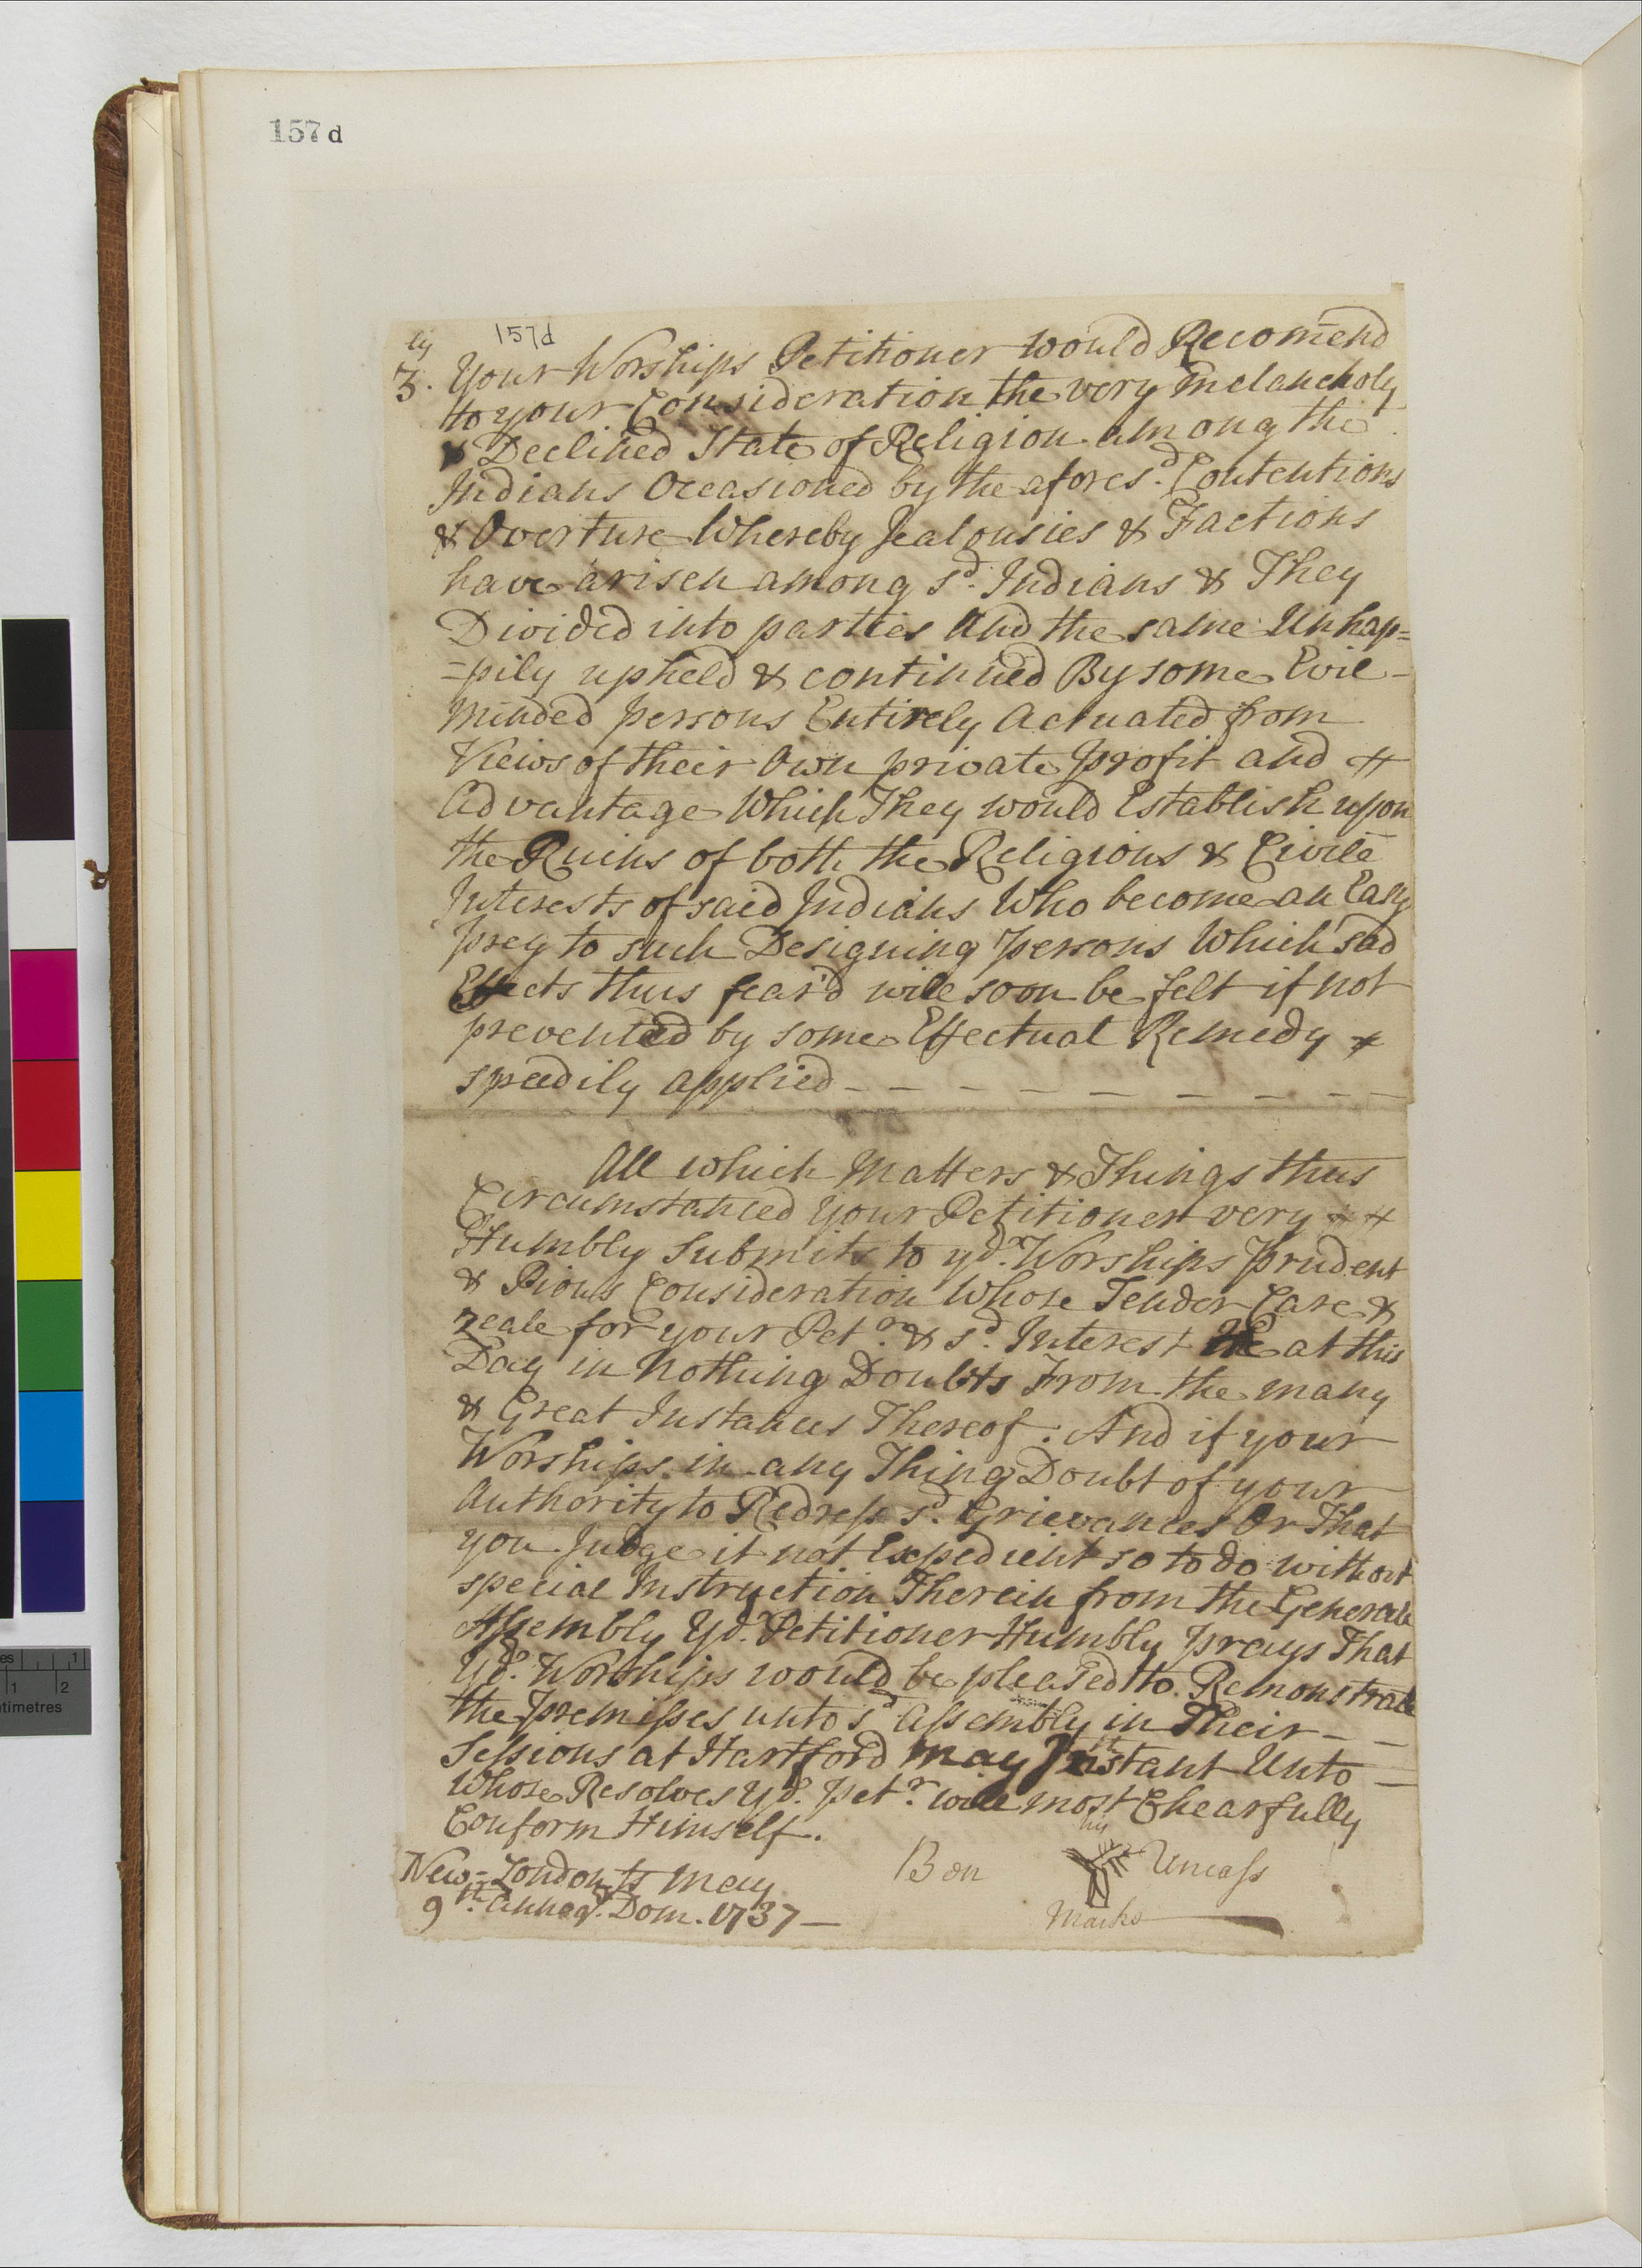 157 d
157d
3.ly Your Worships Petitioner would Recomend
to your Consideration the very melancholy
& Declined State of Religion among the
Indians Occasioned by the afores.d Contentions
& Overture Whereby Jealousies & Factions
have arisen among s.d Indians & They
Divided into parties And the same Unhap=
=pily upheld & continued By some Evil-
minded persons Entirely Actuated from
Views of their Own private profit and
Advantage Which They would Establish upon
the Ruins of both the Religious & Civile
Interests of said Indians Who become an Easy
prey to such Designing persons Which sad
Effects thus fear'd will soon be felt if not
prevented by some Effectual Remedy
speedily applied
All which Matters & Things thus
Circumstanced Your Petitioner very
Humbly Submits to yo.r Worships Prudent
& Pious Consideration Whose Tender Care &
zeale for your Pet.or & s.d Interest He at this
Day in Nothing Doubts From the many
& Great Instances Thereof: And if your
Worships in any Thing Doubt of your
Authority to Redress s.d Grievances Or That
you Judge it not Expedient so to do without
special Instruction Therein from the Generale
Assembly Yo.r Petitioner Humbly prays That
Yo.r Worships would be pleased to Remonstrate
the premisses unto s.d Assembly in Their
Sessions at Hartford May Instant Unto
Whose Resolves Yo.r Pet.r will most Chearfully
Conform Himself.
his
Ben Uncass
Marke
New-London May
9.th Dom. 1737